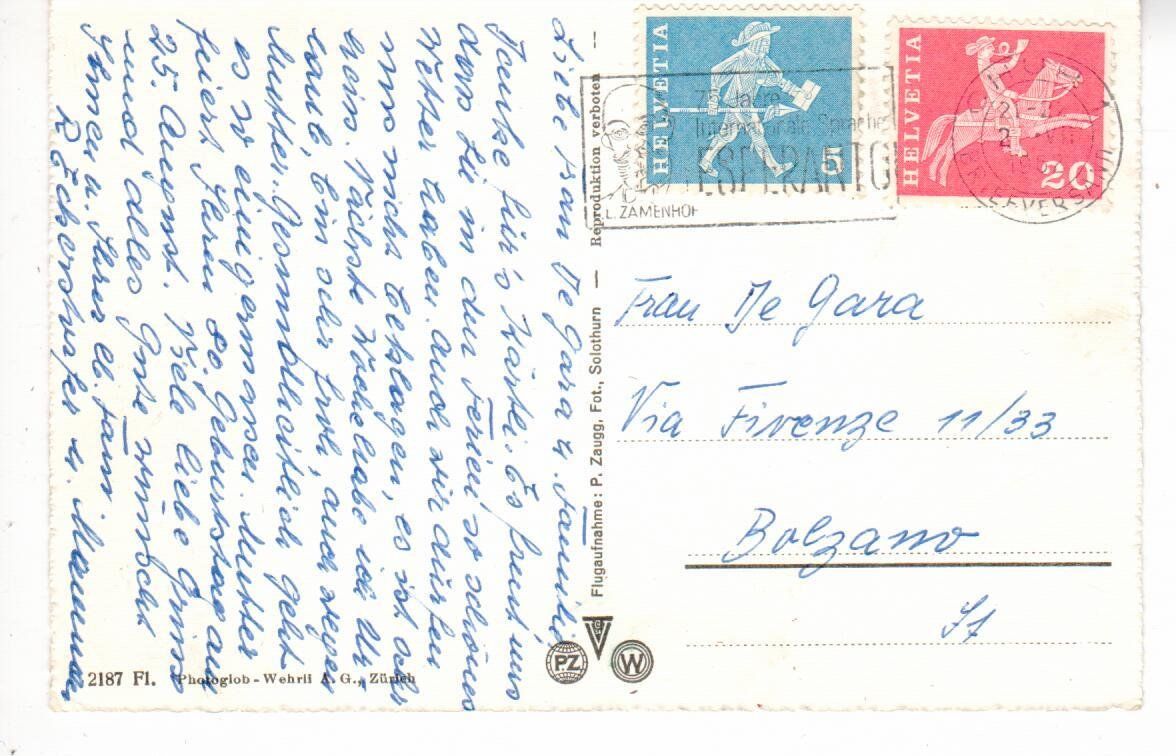 Liebe Frau De Gara u. Familie
Danke für's Kärtli. Es freut uns
dass Sie in den Ferien so schönes
Wetter haben. auch wir dürfen
uns nicht beklagen, es ist sehr
heiss. Nächste Woche habe ich Ur-
laub, bin sehr froh, auch wegen
Mutter. Gesundheitlich geht
es so einigermassen. Mutter
feiert ihren 80. Geburtstag am
25. August. Viele liebe Grüsse
und alles Gute wünscht
Ihnen u. Ihrer lb. Fam.
u.
HELVETIA
5
HELVETIA
20
75 Jahre
Internationale Sprache
ESPERANTO
L.L. ZAMENHOF
BRIEFVERSAND
Reproduktion verboten
Flugaufnahme: P. Zaugg, Fot., Solothurn
Frau De Gara
Via Firenze 11/33
Bolzano
It
PZ
W
2187 Fl. Photoglob-Wehrli A. G., Zürich